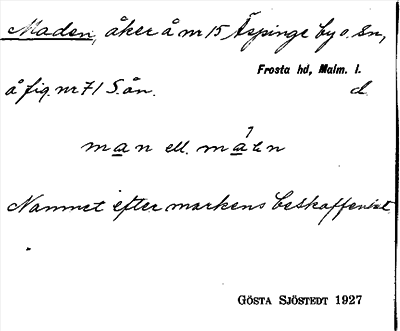 Maden, åker å nr 15 Äspinge by o. sn,
Frosta hd, Malm. l.
å fig. nr 71 S. ån. d.
man ell.
Namnet efter markens beskaffenhet.
GÖSTA SJÖSTEDT 1927